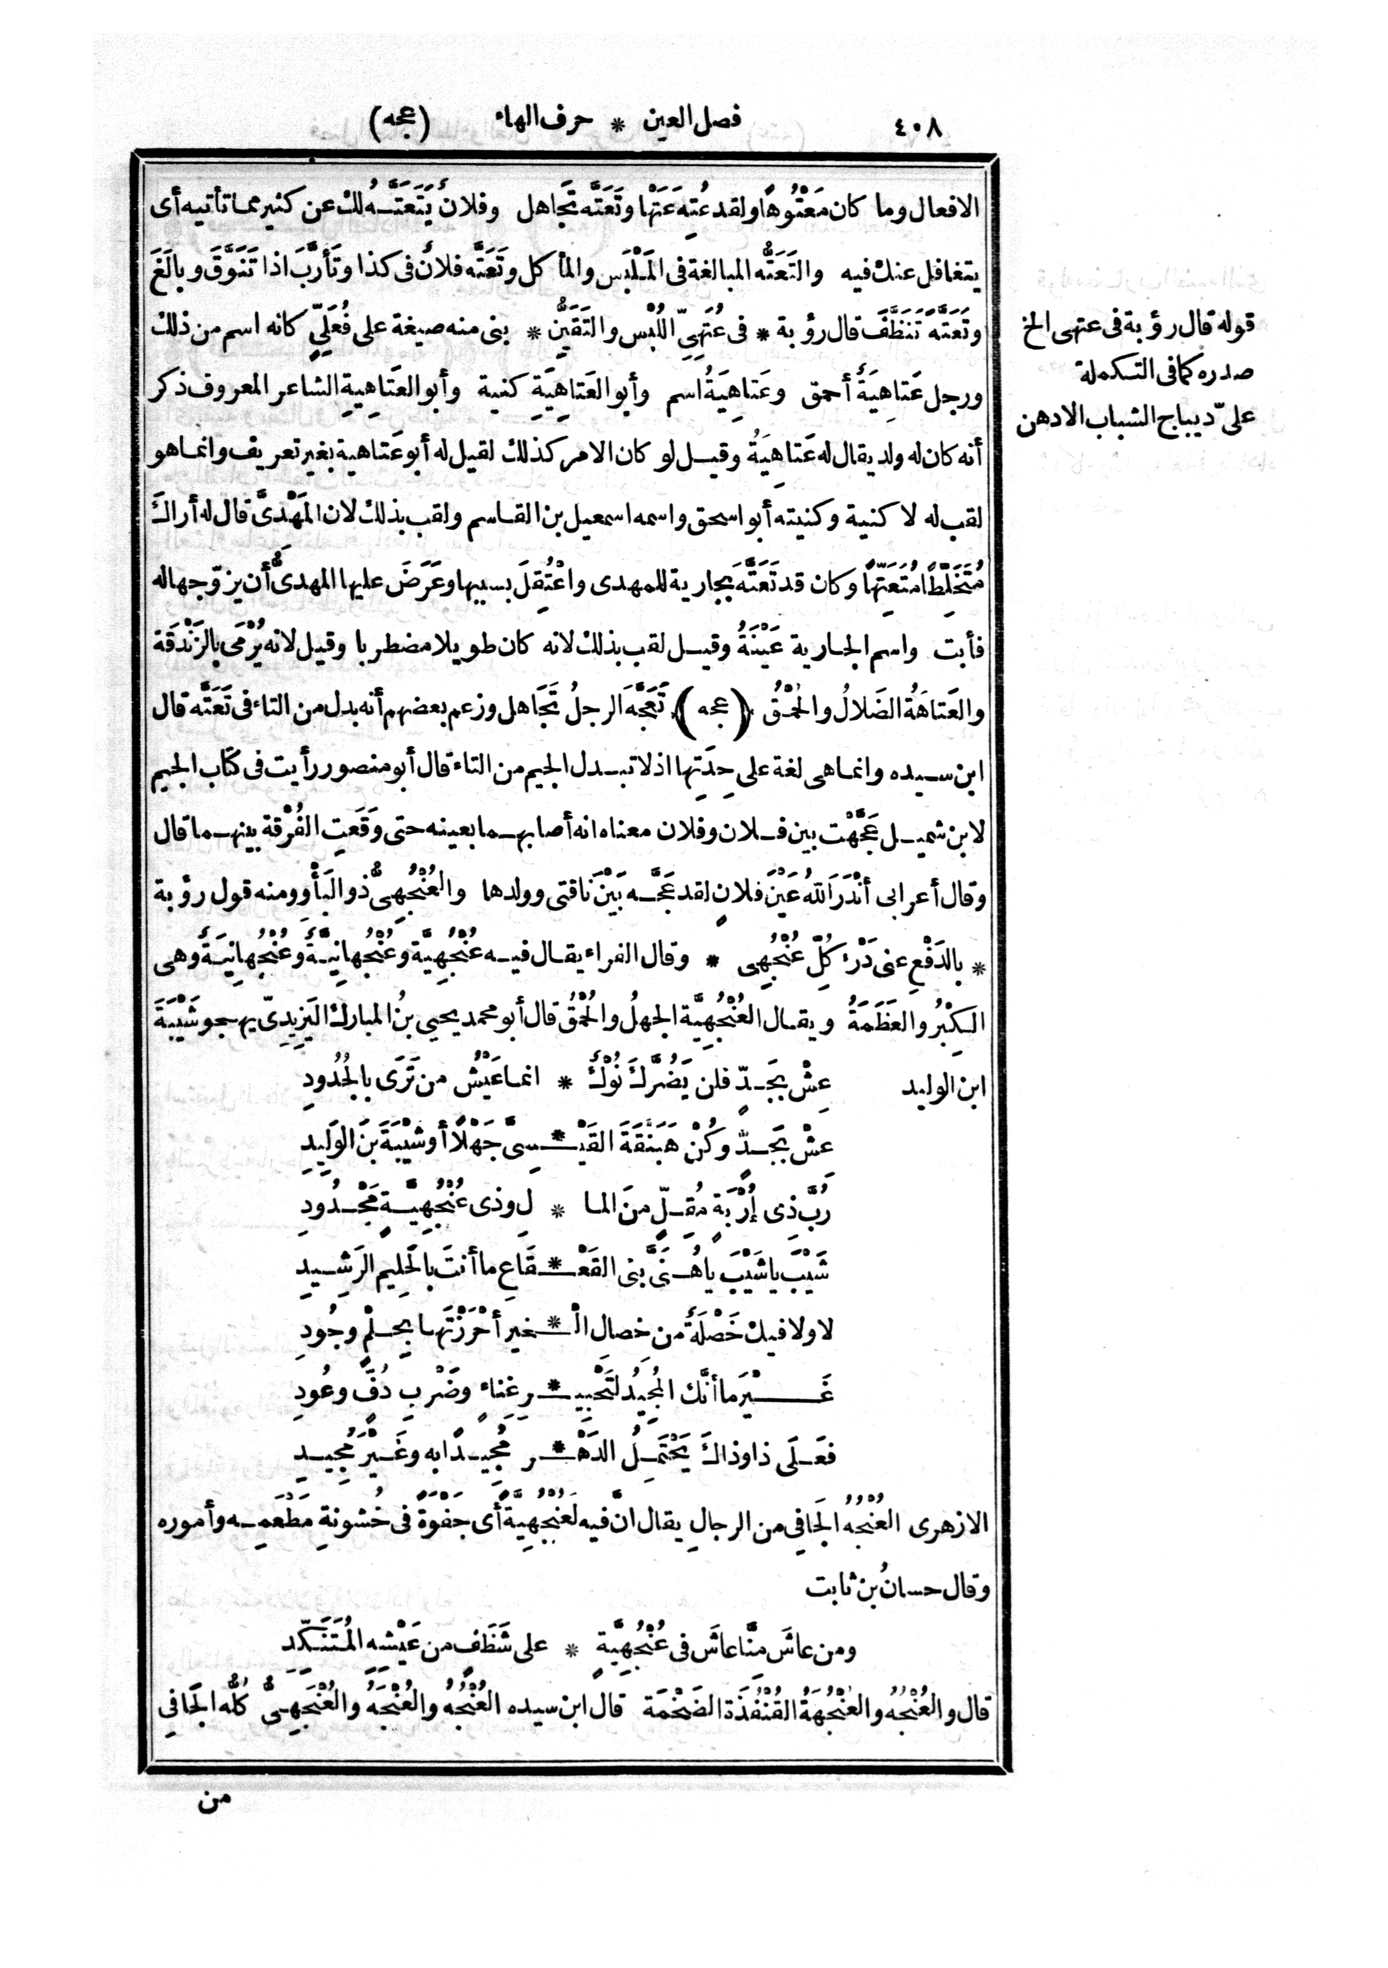 ٤٠٨ فصل العين * حرف الهاء (عجه)
الافعال وما كان مَعْتُوهًا ولقد عُتِه عَتَهًا وتَعَتَّه تَجَاهل وفلانٌ يَتَعَتَّهُ لك عن كثير مما تأتيه أى
يتغافل عنك فيه والتَعَتُّه المبالغة فى المَلْبَس والمأكل وتَعَتَّه فلانٌ فى كذا وتَأرَّبَ اذا تَنَوَّقَ وبالَغَ
وتَعَتَّه تَنَظَّفَ قال رؤبة * فى عُتَهِىِّ اللُبْسِ والتَقَيُّنِ * بنى منه صيغة على فُعَلِىٍّ كانه اسم من ذلك
قوله قال رؤبة فى عتهى الخ
صدره كما فى التكملة
علىّ ديباج الشباب الادهن
ورجل عَتاهِيَةٌ أحمق وعَتاهِيَةُ اسم وأبو العَتاهِيَةِ كنية وأبو العَتاهِيةِ الشاعر المعروف ذكر
أنه كان له ولد يقال له عَتاهِيَةُ وقيل لو كان الامر كذلك لقيل له أبو عَتاهية بغير تعريف وانما هو
لقب له لا كنية وكنيته أبو اسحق واسمه اسمعيل بن القاسم ولقب بذلك لان المَهْدىَّ قال له أراك
مُتَخَلِّطًا مُتَعَتِّهًا وكان قد تَعَتَّه بجارية للمهدى واعْتُقِلَ بسببها وعَرَضَ عليها المهدىُّ أن يزوّجها له
فأبت واسم الجارية عَيْنَةُ وقيل لقب بذلك لانه كان طويلا مضطربا وقيل لانه يُرْمَى بالزَنْدَقة
والعَتاهَةُ الضَلالُ والحُمْقُ (عجه) تَعَجَّهَ الرجلُ تَجَاهل وزعم بعضهم أنه بدل من التاء فى تَعَتَّه قال
ابن سيده وانما هى لغة على حِدَتِها اذ لا تبدل الجيم من التاء قال أبو منصور رأيت فى كتاب الجيم
لابن شميل عَجَّهْت بين فلان وفلان معناه انه أصابهما بعينه حتى وَقَعَتِ الفُرْقة بينهما قال
وقال أعرابى أنْدَرَ اللهُ عَيْنَ فلانٍ لقد عَجَّه بَيْنَ ناقتى وولدها والعُنْجُهِىُّ ذو البَأْو ومنه قول رؤبة
* بالدَفْعِ عنى دَرْءَ كُلِّ عُنْجُهِى * وقال الفراء يقال فيه عُنْجُهِيَّة وعُنْجُهانِيَّةٌ وعُنْجُهانِيَةٌ وهى
الكِبْرُ والعَظَمَةُ ويقال العُنْجُهِيَّة الجهلُ والحُمْقُ قال أبو محمد يحيى بنُ المبارك اليَزِيدِىّ يهجو شَيْبَةَ
ابن الوليد عِشْ بجَدٍّ فلن يَضُرَّكَ نُوْكٌ * انما عَيْشُ من تَرَى بالجُدُودِ
عِشْ بجَدٍّ وكُنْ هَبَنَّقَةَ القَيْـ * ـسِىَّ جَهْلًا أو شَيْبَةَ بنَ الوَلِيدِ
رُبَّ ذى إرْبَةٍ مُقِلٍّ منَ الما * لِ وذى عُنْجُهِيَّةٍ مَجْدُودِ
شَيْبَ يا شَيْبَ يا هُنَىَّ بنى القَعْـ * ـقَاعِ ما أنتَ بالحَلِيمِ الرَشِيدِ
لا ولا فيك خَصْلَةٌ من خِصال الْـ * ـخَيرِ أحْرَزْتَها بحِلْمٍ وجُودِ
غَيْرَ ما أنَّك المُجِيدُ لتَحْبِيـ * ـرِ غِناءٍ وضَرْبِ دُفٍّ وعُودِ
فعَلَى ذا وذاكَ يَحْتَمِلُ الدَهْـ * ـرُ مُجِيدًا به وغَيْرَ مُجِيدِ
الازهرى العُنْجُه الجَافِى من الرجالِ يقال انّ فيه لعُنْجُهِيَّةً أى جَفْوَةً فى خُشونةِ مَطْعَمِه وأموره
وقال حسانُ بن ثابت
ومن عاشَ مِنَّا عاشَ فى عُنْجُهِيَّةٍ * على شَظَفٍ من عَيْشِهِ المُتَنَكِّدِ
قال والعُنْجُهُ والعُنْجُهَةُ القُنْفُذَة الضَخْمَة قال ابن سيده العُنْجُهُ والعُنْجَهُ والعُنْجَهِىُّ كُلُّه الجَافِى
من